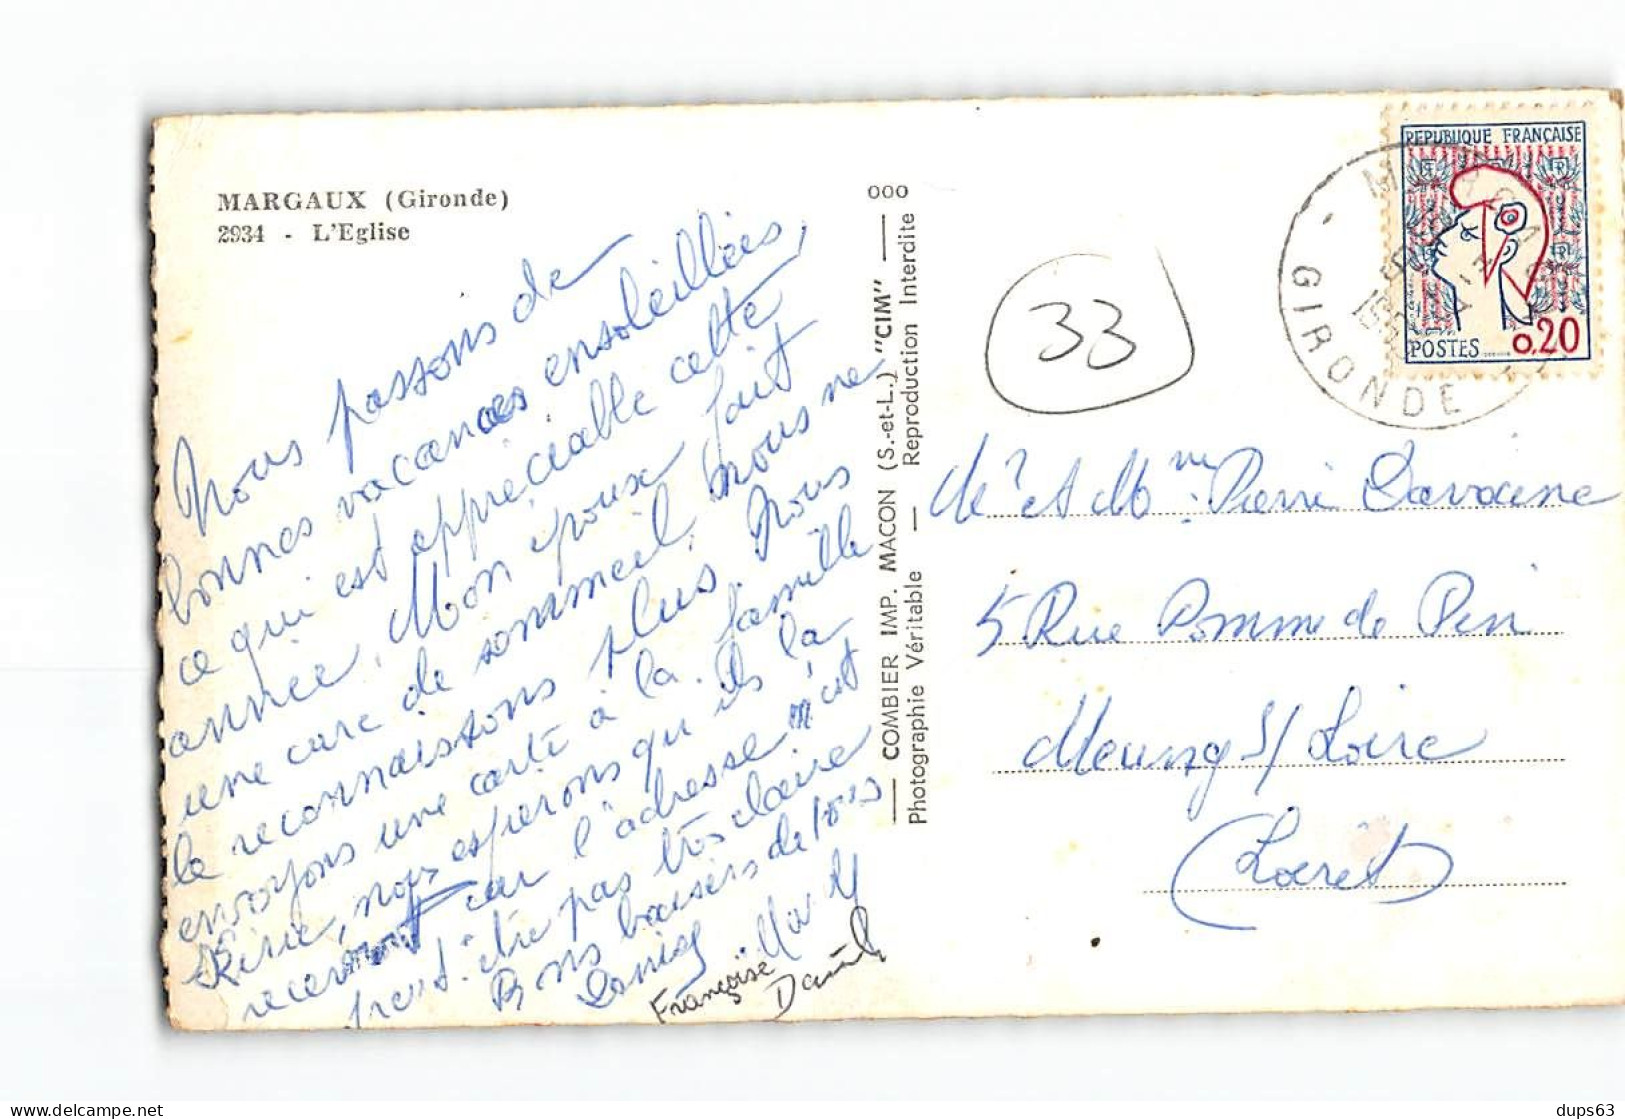 MARGAUX (Gironde)
2934 - L'Eglise
Nous passons de
bonnes vacances ensoleillées,
ce qui est appréciable cette
année. Mon épouse fait
une cure de sommeil, nous ne
la reconnaissons plus. Nous
envoyons une carte à la famille
nous espérons qu'ils la
recevront car l'adresse n'est
peut-être pas très claire
Bons baisers de tous
Françoise
COMBIER IMP. MACON (S.-et-L.) "CIM"
Photographie Véritable — Reproduction Interdite
ooo
33
REPUBLIQUE FRANÇAISE
POSTES 0,20
GIRONDE
Mr et Mme Pierre
5 Rue Pomme de Pin
Meung s/ Loire
(Loiret)
dups63